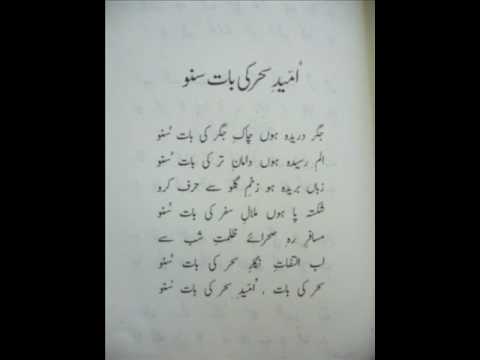 اُمیدِ سحر کی بات سنو
جگر دریدہ ہوں چاکِ جگر کی بات سُنو
الم رسیدہ ہوں دامانِ تر کی بات سُنو
زباں بریدہ ہوں زخمِ گلو سے حرف کرو
شکستہ پا ہوں ملالِ سفر کی بات سُنو
مسافرِ رہِ صحرائے ظلمتِ شب سے
اب التفاتِ نگارِ سحر کی بات سُنو
سحر کی بات ، اُمیدِ سحر کی بات سُنو